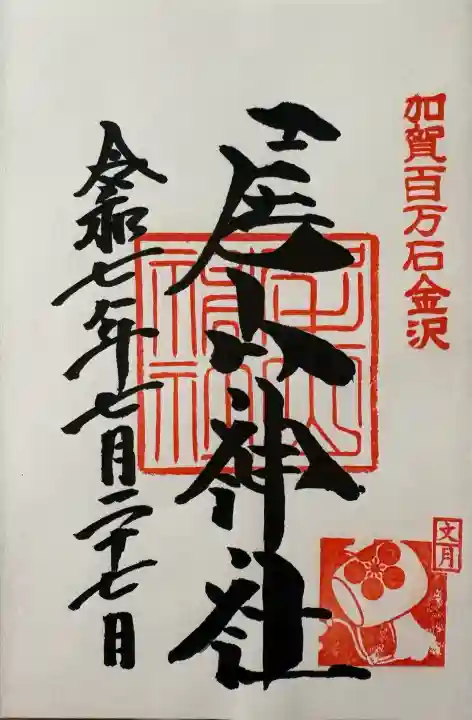 加賀百万石金沢
文月
尾山神社
令和七年七月二十七日